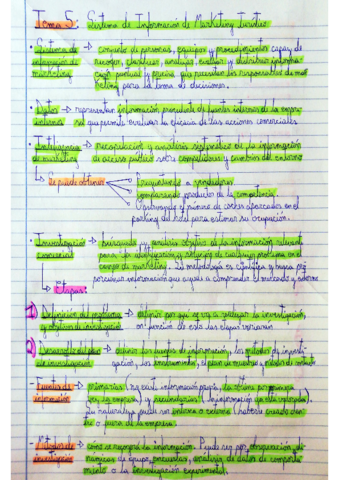 Tema 5: Sistema de Información de Marketing Turístico
• Sistema de → conjunto de personas, equipos y procedimientos capaz de
información de recoger, clasificar, analizar, evaluar y distribuir informa-
marketing ción puntual y precisa que necesitan los responsables de mar
keting para la toma de decisiones.
• Datos → representan información procedente de fuentes internas de la empre-
internos sa que permite evaluar la eficacia de las acciones comerciales
• Inteligencia → recopilación y análisis sistemático de la información
de marketing de acceso público sobre competidores y cambios del entorno
↳ Se puede obtener
Preguntando a vendedores
comparando productos de la competencia
Observando el número de coches aparcados en el
parking del hotel para estimar su ocupación.
Investigación → búsqueda y análisis objetivo de la información relevante
comercial para la identificación y solución de cualquier problema en el
campo de marketing. La metodología es científica y logra pro
porcionar información que ayuda a comprender el mercado y entorno
↳ Etapas:
1) Definición del problema → definir por qué se va a realizar la investigación,
y objetivo de investigación en función de esto las etapas variarán
2) Desarrollo del plan → definir las fuentes de información, los métodos de investi-
de investigación gación, los instrumentos, el plan de muestreo y métodos de contacto
Fuentes de → primarias: no existe información previa, la obtiene por primera
información vez la empresa) y secundarias (la información ya está elaborada)
Su naturaleza puede ser interna o externa (haberse creado den-
tro o fuera de la empresa.
Métodos de → cómo se recogerá la información. Puede ser por observación, di-
investigación námicas de grupo, encuestas, análisis de datos de comporta
miento o la investigación experimental.